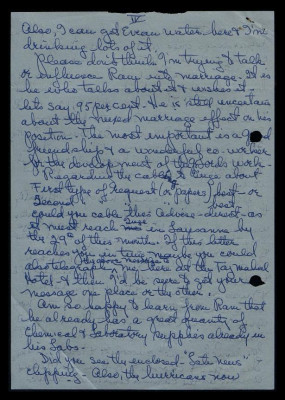 IV
Also, I can get Evean water here & I'm
drinking lots of it.
Please don't think I'm trying to talk
or influence Ram into marriage. It is
he who talks about it & wishes it,
lets say, 95 percent. He is still uncertain
about the mixed marriage effect on his
position. The most important is a good
friendship & a wonderful co-worker
for the development of the Lords Work
Regarding the cable to Inge about
First type of request (or papers) best - or
Second " " " " best,
could you cable this advice - direct - as
it must reach Inge in Lausanne by
the 29th of this month. If this letter
reaches you in time maybe you could
also telegraph me here at the Taj Mahal
Hotel & then I'd be sure to get your
message one place or the other.
Am so happy to learn from Ram that
he already has a great quantity of
Chemical & Laboratory supplies already in
his Labs.
Did you see the enclosed "Late News"
clipping - Also, the hurricane now